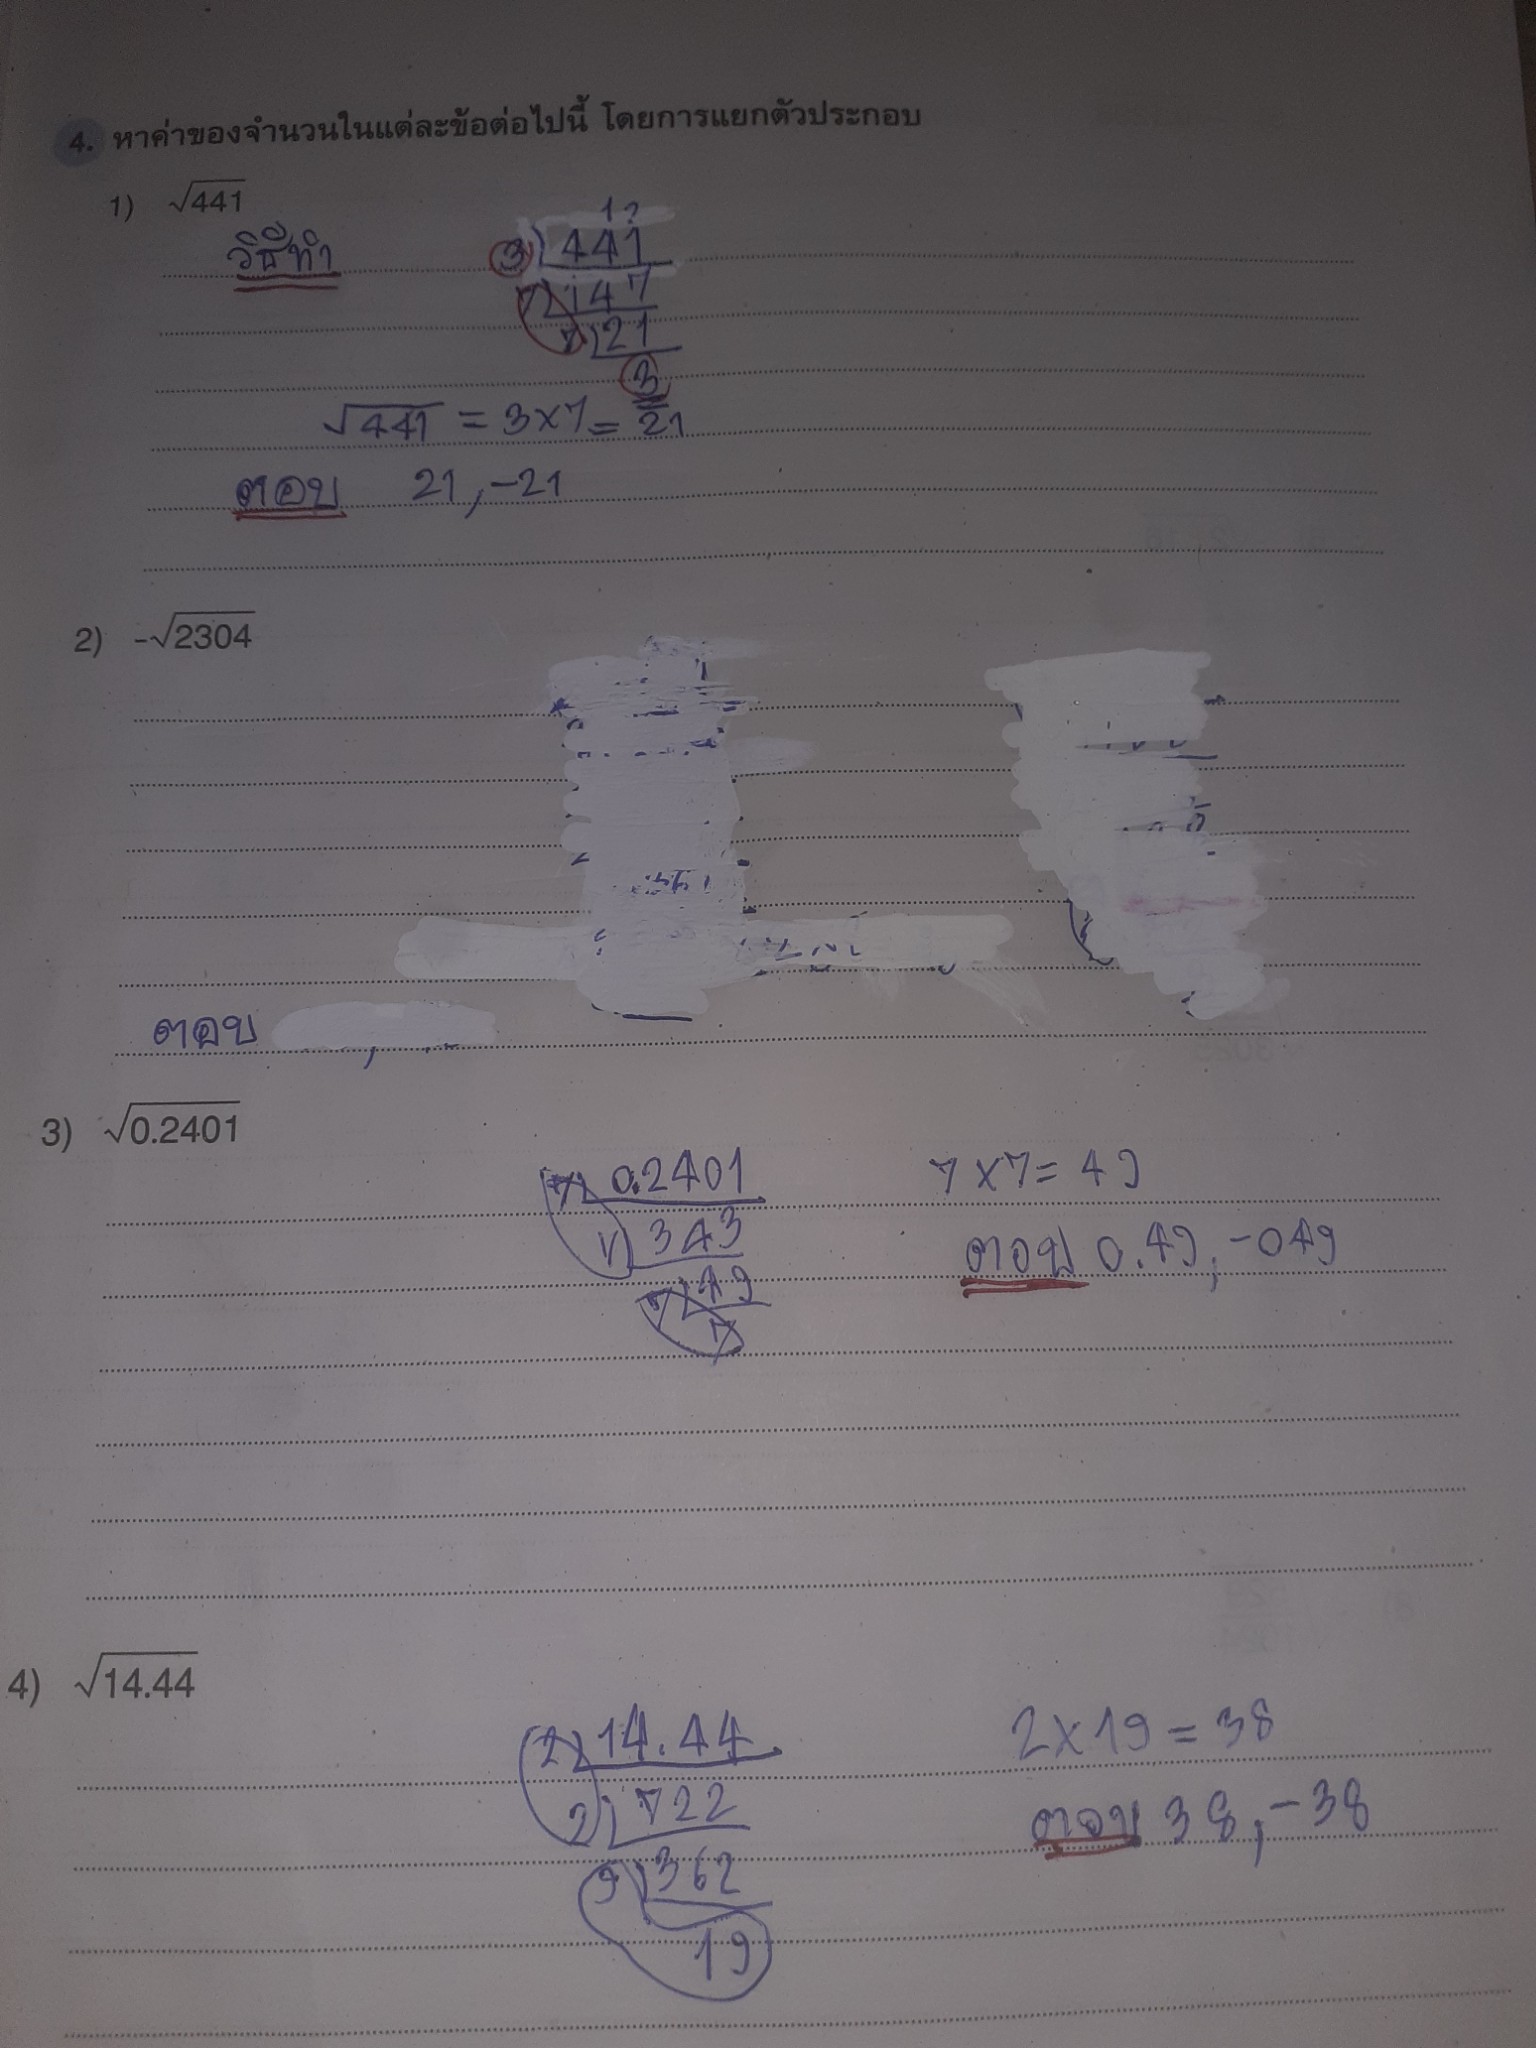 4. หาค่าของจำนวนในแต่ละข้อต่อไปนี้ โดยการแยกตัวประกอบ
1) √441
12
วิธีทำ
3)441
7)147
7)21
3
√441 = 3×7 = 21
ตอบ 21, -21
2) -√2304
ตอบ
3) √0.2401
7)0.2401
7)343
7)49
7
7×7 = 49
ตอบ 0.49, -049
4) √14.44
2)14.44
2)722
362
19
2×19 = 38
ตอบ 38, -38